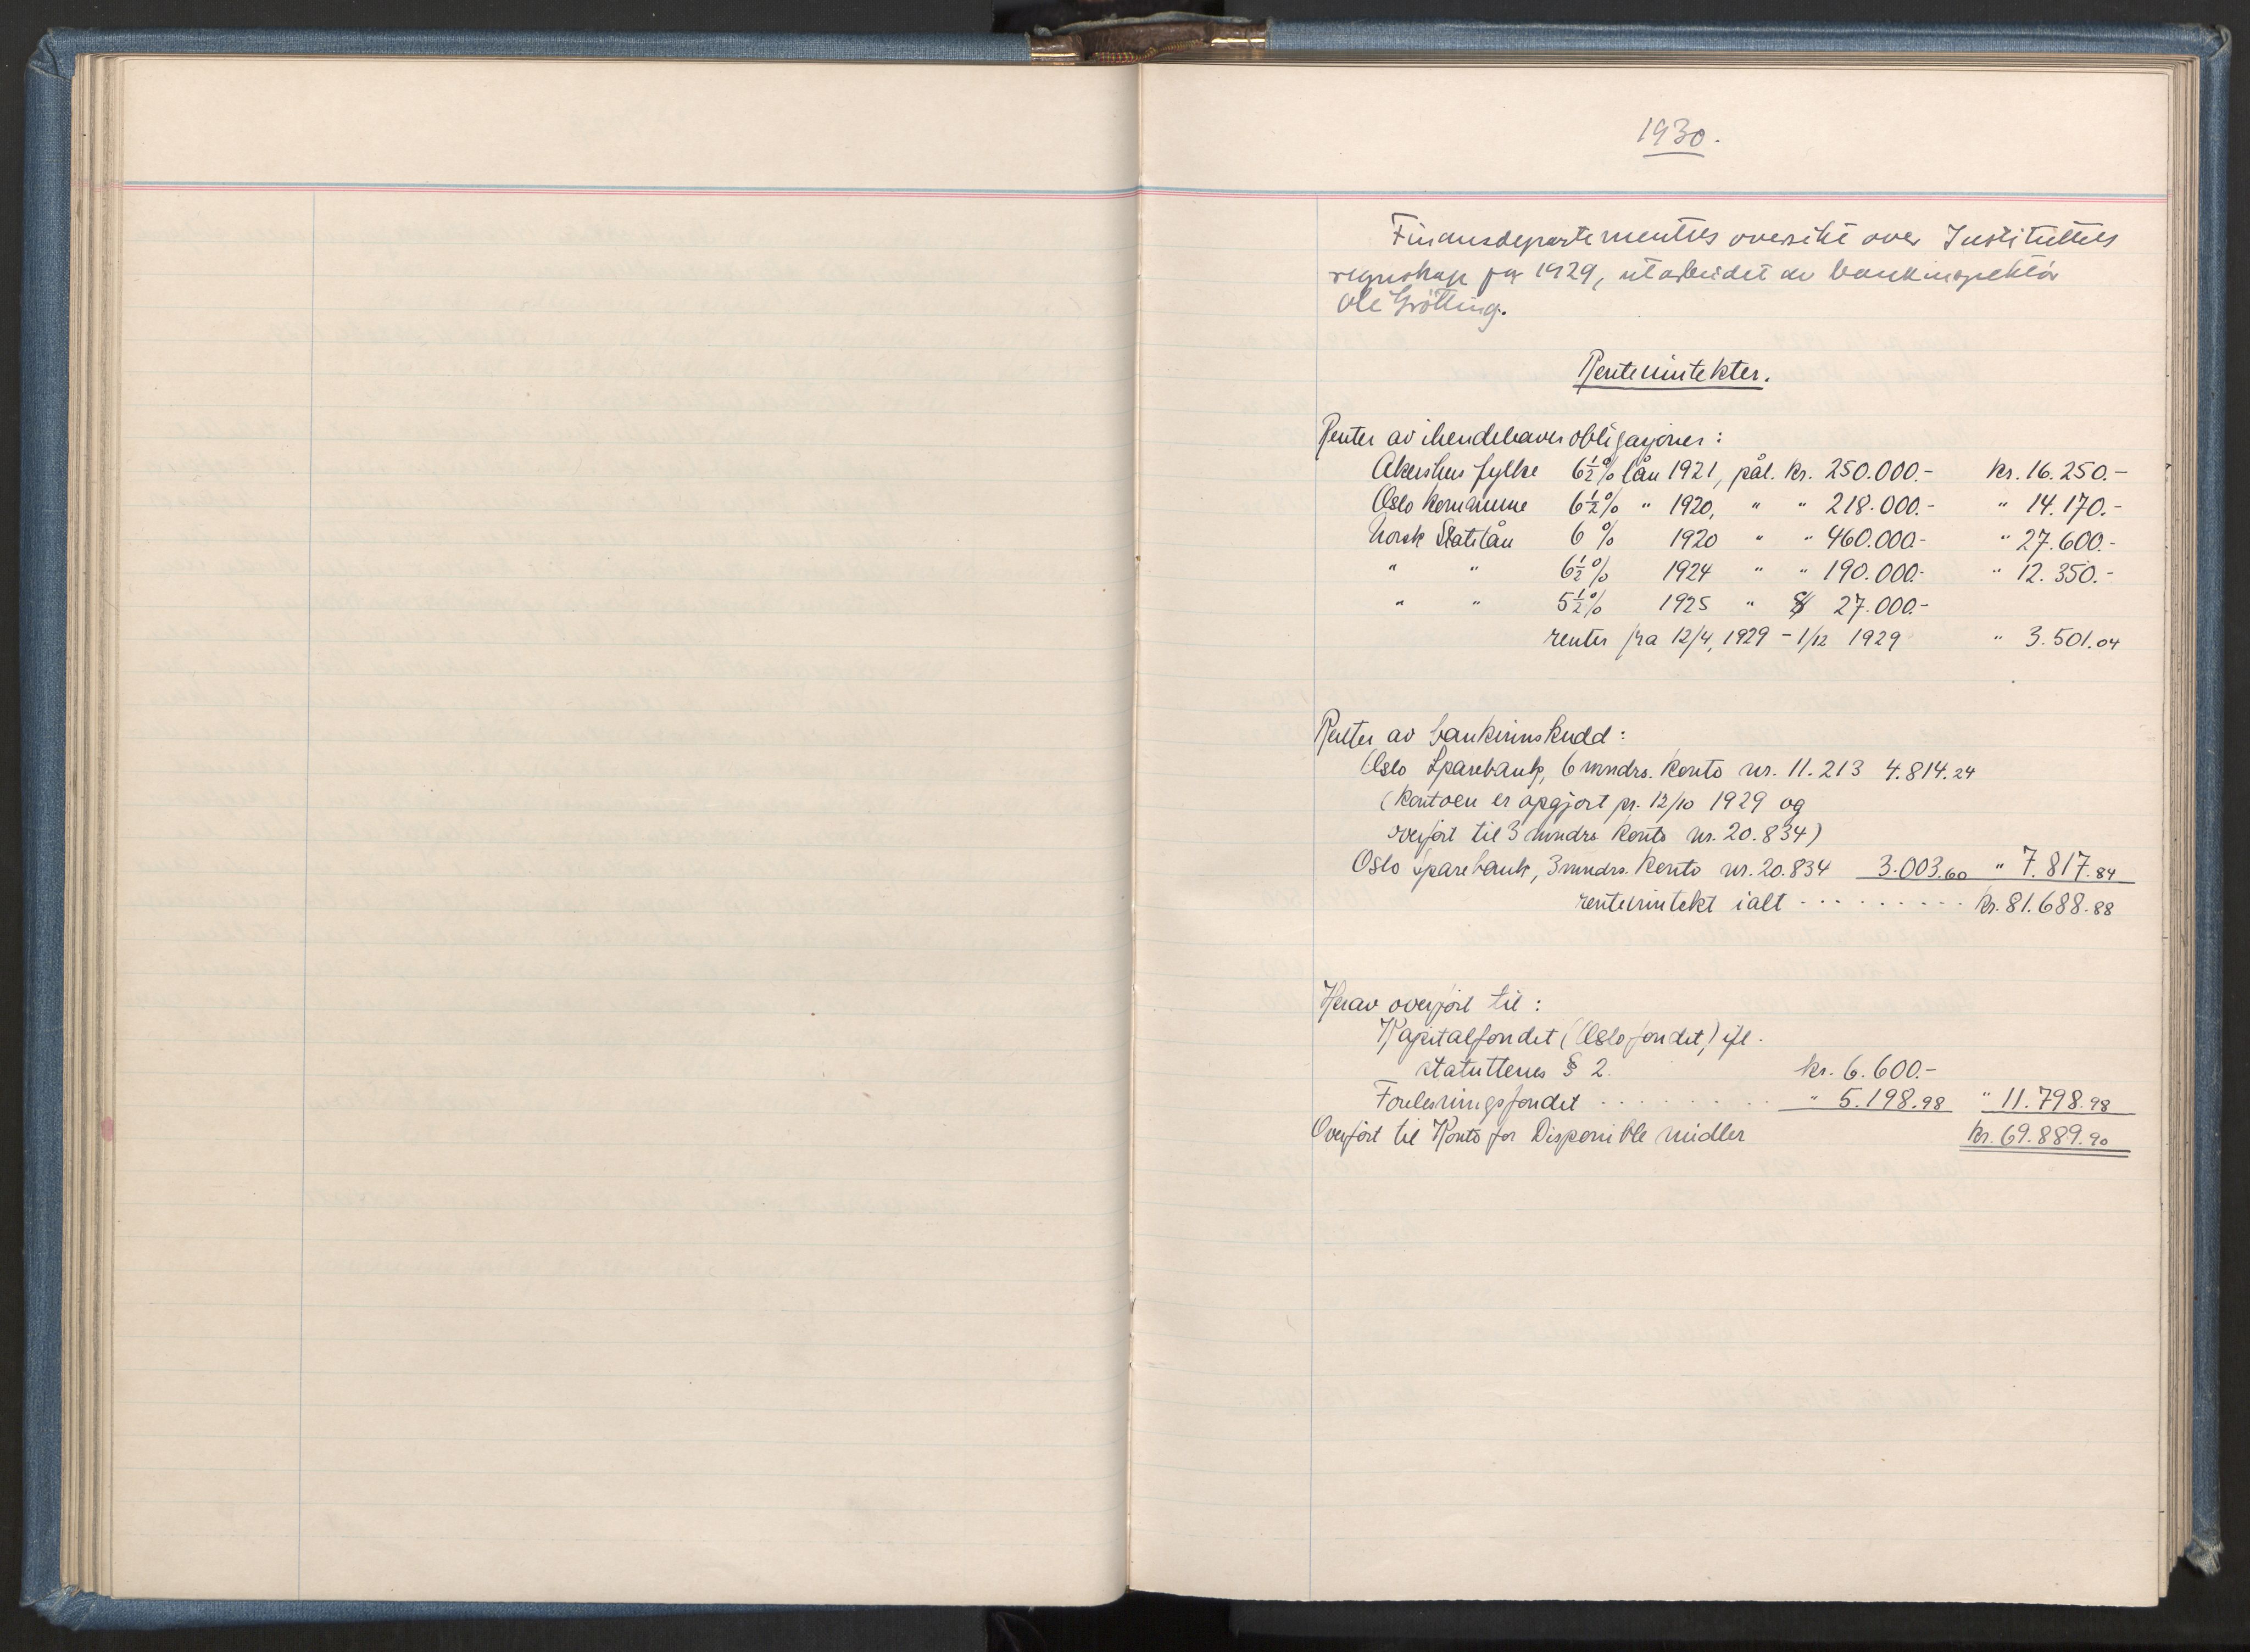 1930.
Finansdepartementets oversikt over Instituttets
regnskap for 1929, utarbeidet av bankinspektör
Ole Grötting.
Renteinntekter.
Renter av ihendehaverobligasjoner:
Akershus fylke 6½% lån 1921, pål. kr. 250.000.- kr. 16.250.-
Oslo kommune 6½% " 1920, " " 218.000.- " 14.170.-
Norsk Statslån 6 % 1920 " " 460.000.- " 27.600.-
" " 6½% 1924 " " 190.000.- " 12.350.-
" " 5½% 1925 " $ 27.000.-
renter fra 12/4, 1929 - 1/12 1929 " 3.501.04
Renter av bankinnskudd:
Oslo Sparebank, 6 mndrs. konto nr. 11.213 4.814.24
(kontoen er opgjort pr. 12/10 1929 og
overfört til 3 mndrs konto nr. 20.834)
Oslo Sparebank, 3 mndrs. konto nr. 20.834 3.003.60 " 7.817.84
renteinntekt ialt - - - - - - - - - kr. 81.688.88
Herav overfört til:
Kapitalfondet (Oslofondet) ifl.
statuttenes § 2. kr. 6.600.-
Forelesningsfondet - - - - - - - - " 5.198.98 " 11.798.98
Overfört til Konto for Disponible midler kr. 69.889.90